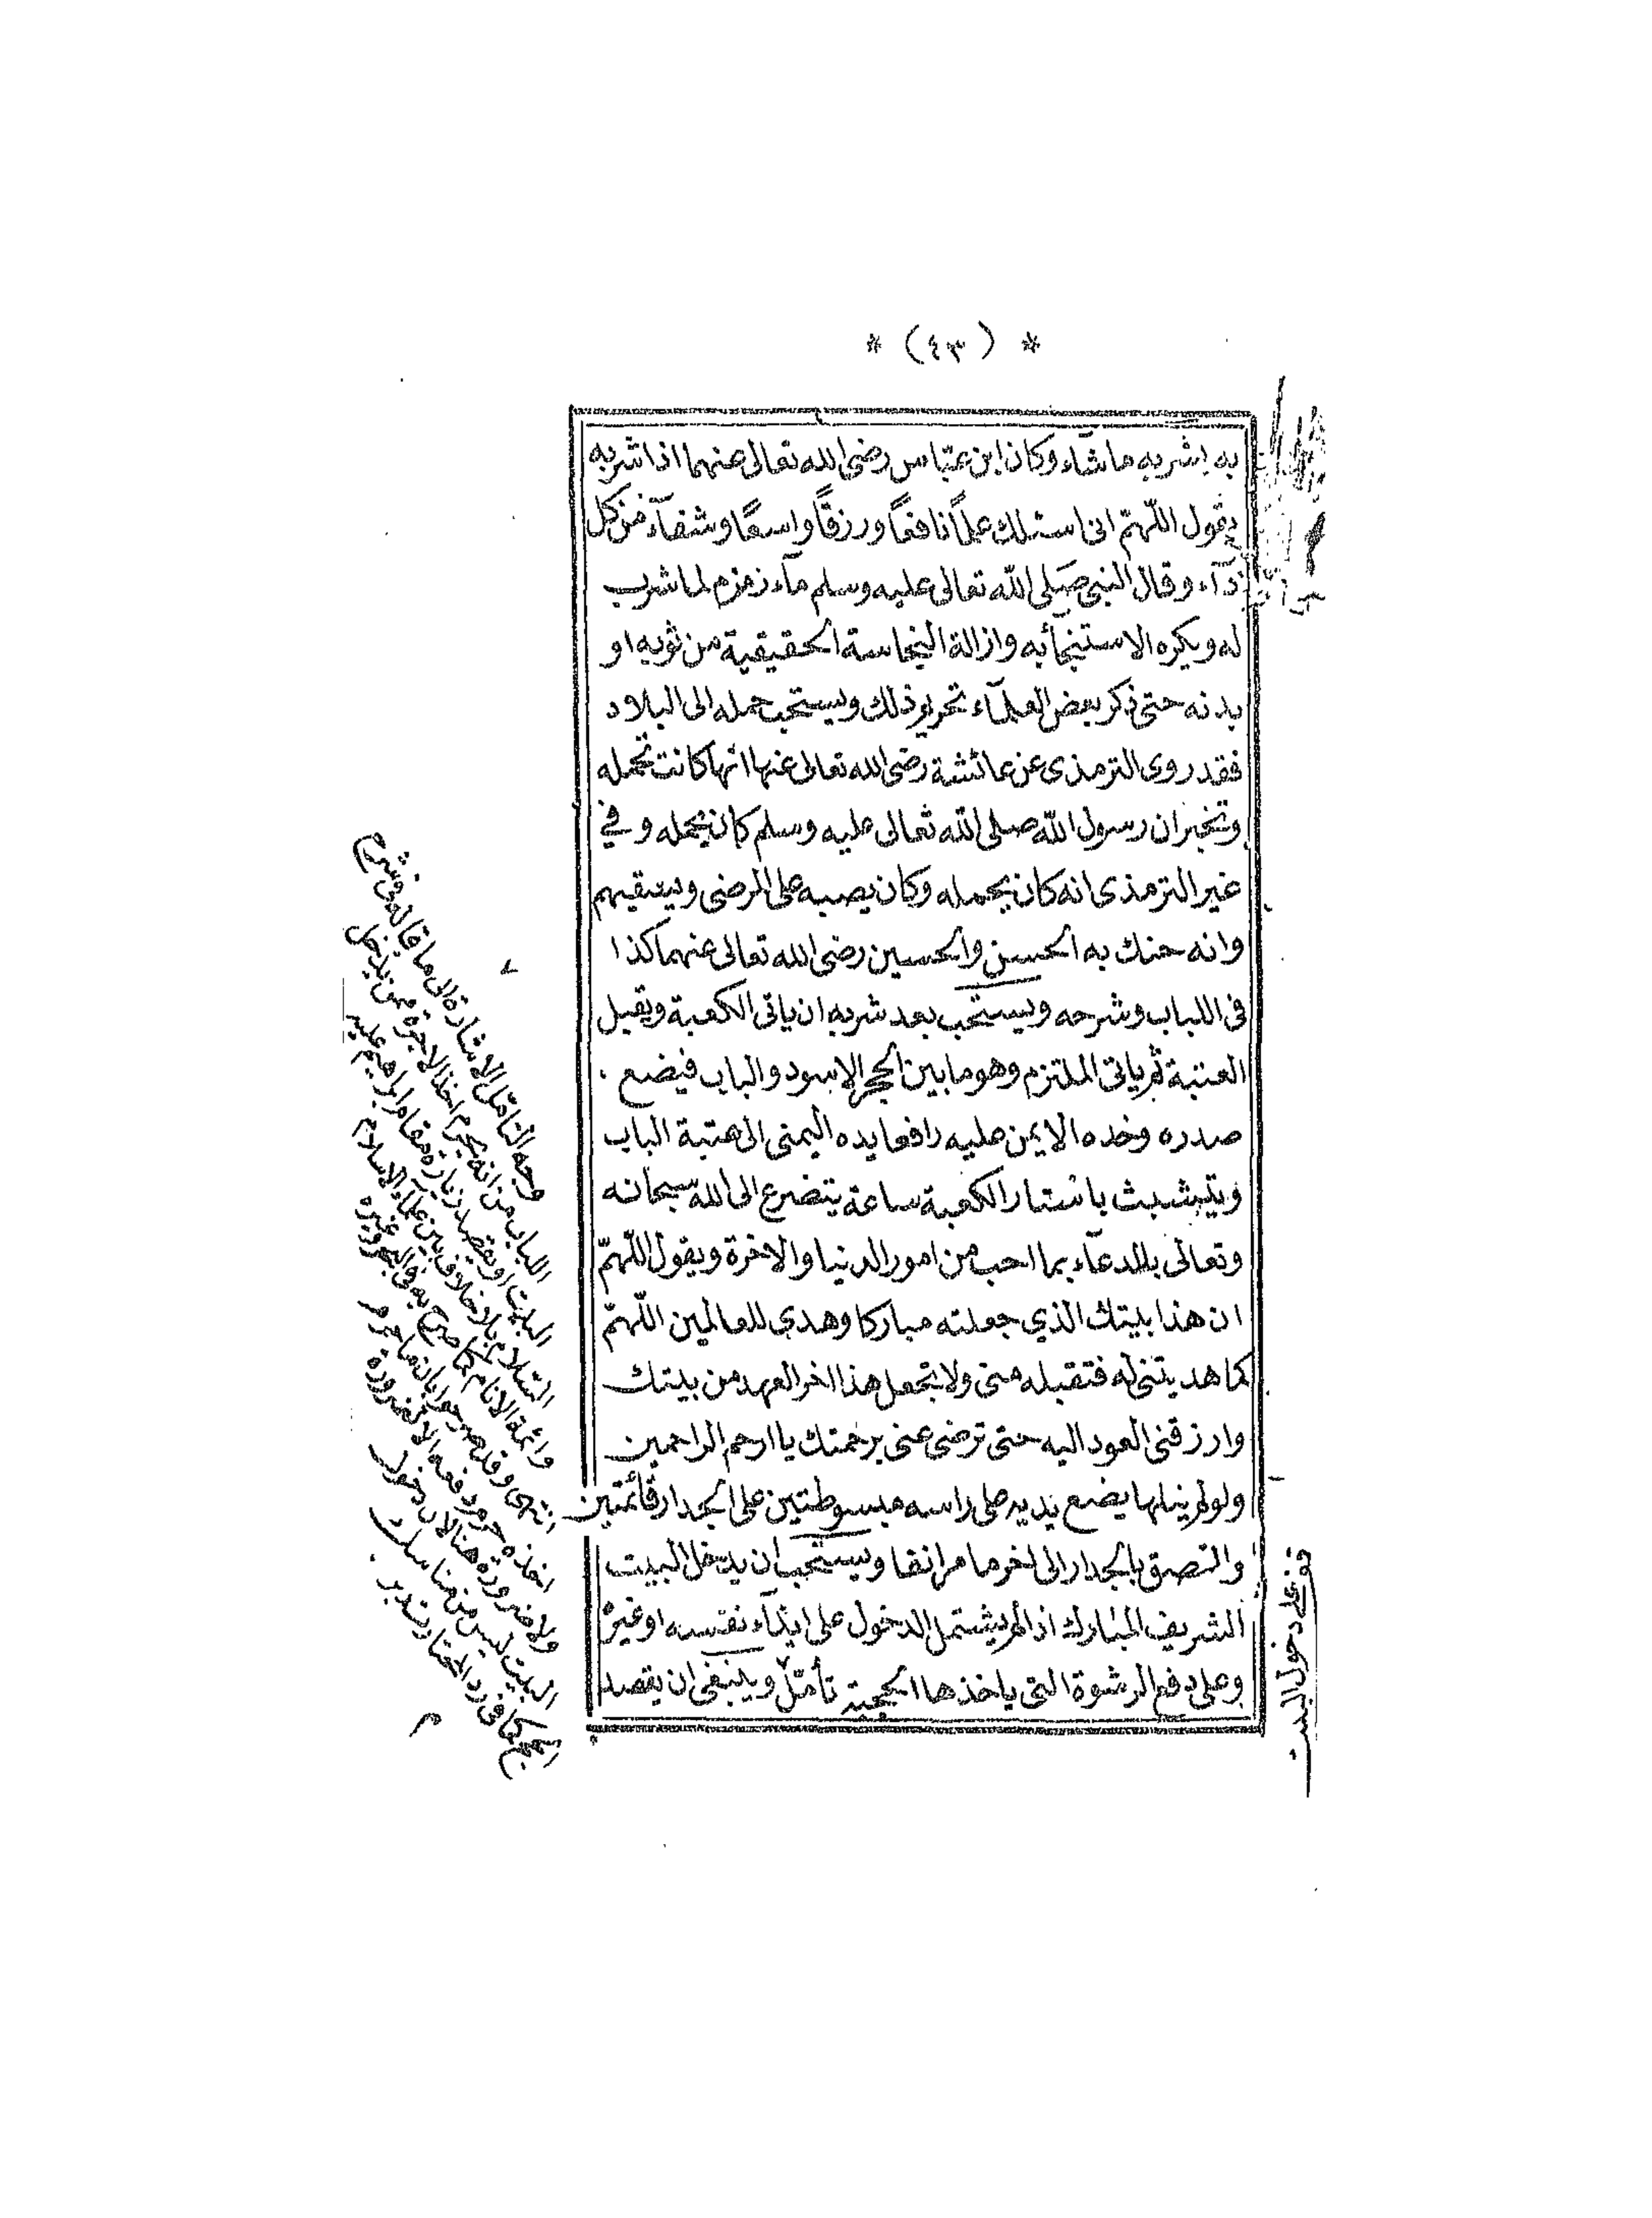 * (٤٣) *
به بشربه ماشآء وكان ابن عبّاس رضى الله تعالى عنهما اذا شربه
يقول اللّهمّ انى اسئلك علمًا نافعًا ورزقًا واسعًا وشفآءً من كل
دآء وقال النبى صلى اللّه تعالى عليه وسلم مآء زمزم لما شرب
له ويكره الاستنجآئبه وازالة النجاسة الحقيقية من ثوبه او
بدنه حتى ذكر بعض العلمآء تحريم ذلك ويستحب حمله الى البلاد
فقد روى الترمذى عن عائشة رضى الله تعالى عنها انها كانت تحمله
وتخبر ان رسول اللّه صلى اللّه تعالى عليه وسلم كان يحمله وفي
غير الترمذى انه كان يحمله وكان يصبه على المرضى ويسقيهم
وانه حنك به الحسن والحسين رضى الله تعالى عنهما كذا
فى اللباب وشرحه ويستحب بعد شربه ان ياتى الكعبة ويقبل
العتبة ثم ياتى الملتزم وهو مابين الحجر الاسود والباب فيضع
صدره وخده الايمن عليه رافعا يده اليمنى الى عتبة الباب
ويتشبث باستار الكعبة ساعة يتضرع الى الله سبحانه
وتعالى بالدعآء بما احب من امور الدنيا والاخرة ويقول اللّهمّ
ان هذا بيتك الذي جعلته مباركا وهدى للعالمين اللّهمّ
كما هديتنى له فتقبله منى ولا تجعل هذا اخر العهد من بيتك
وارزقنى العود اليه حتى ترضى عنى برحمتك يا ارحم الراحمين
ولو لم ينلها يضع يديه على راسه مبسوطتين على الجدار قائمتين
والتصق بالجدار الى اخر ما مر انفا ويستحب ان يدخل البيت
الشريف المبارك اذا لم يشتمل الدخول على ايذآء نفسه او غيره
وعلى دفع الرشوة التى ياخذها الحجبة تأمّل وينبغى ان يقصد
قف على دخول البيت
وجه التأمّل الاشارة الى ما قاله فى شرح
اللباب من انه يحرم اخذ الاجرة ممن يدخل
البيت او يقصد زيارة مقام ابراهيم عليه
السّلام بلا خلاف بين علمآء الاسلام
وائمة الانام كما صرح به فى البحر وغيره
انتهى وقد صرحوا بان ما حرم
اخذه حرم دفعه الا لضرورة
ولا ضرورة هنا لان دخول
البيت ليس من مناسك
الحج كما فى رد المحتار تدبر
م